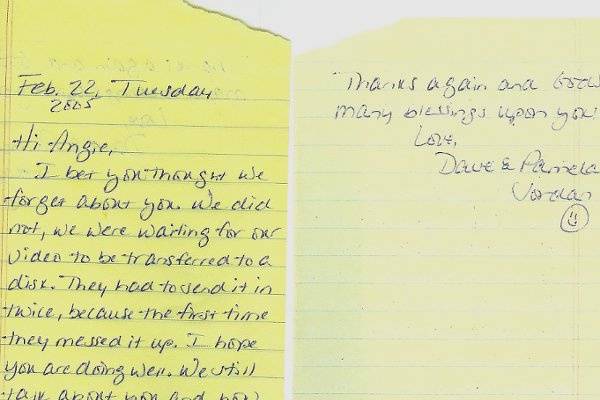 Feb. 22, Tuesday
2005
Hi Angie,
I bet you thought we
forget about you. We did
not, we were waiting for our
video to be transferred to a
disk. They had to send it in
twice, because the first time
they messed it up. I hope
you are doing well. We still
talk about you and how
Thanks again and Gods
many blessings upon you
Love,
Dave & Pamela
Jordan